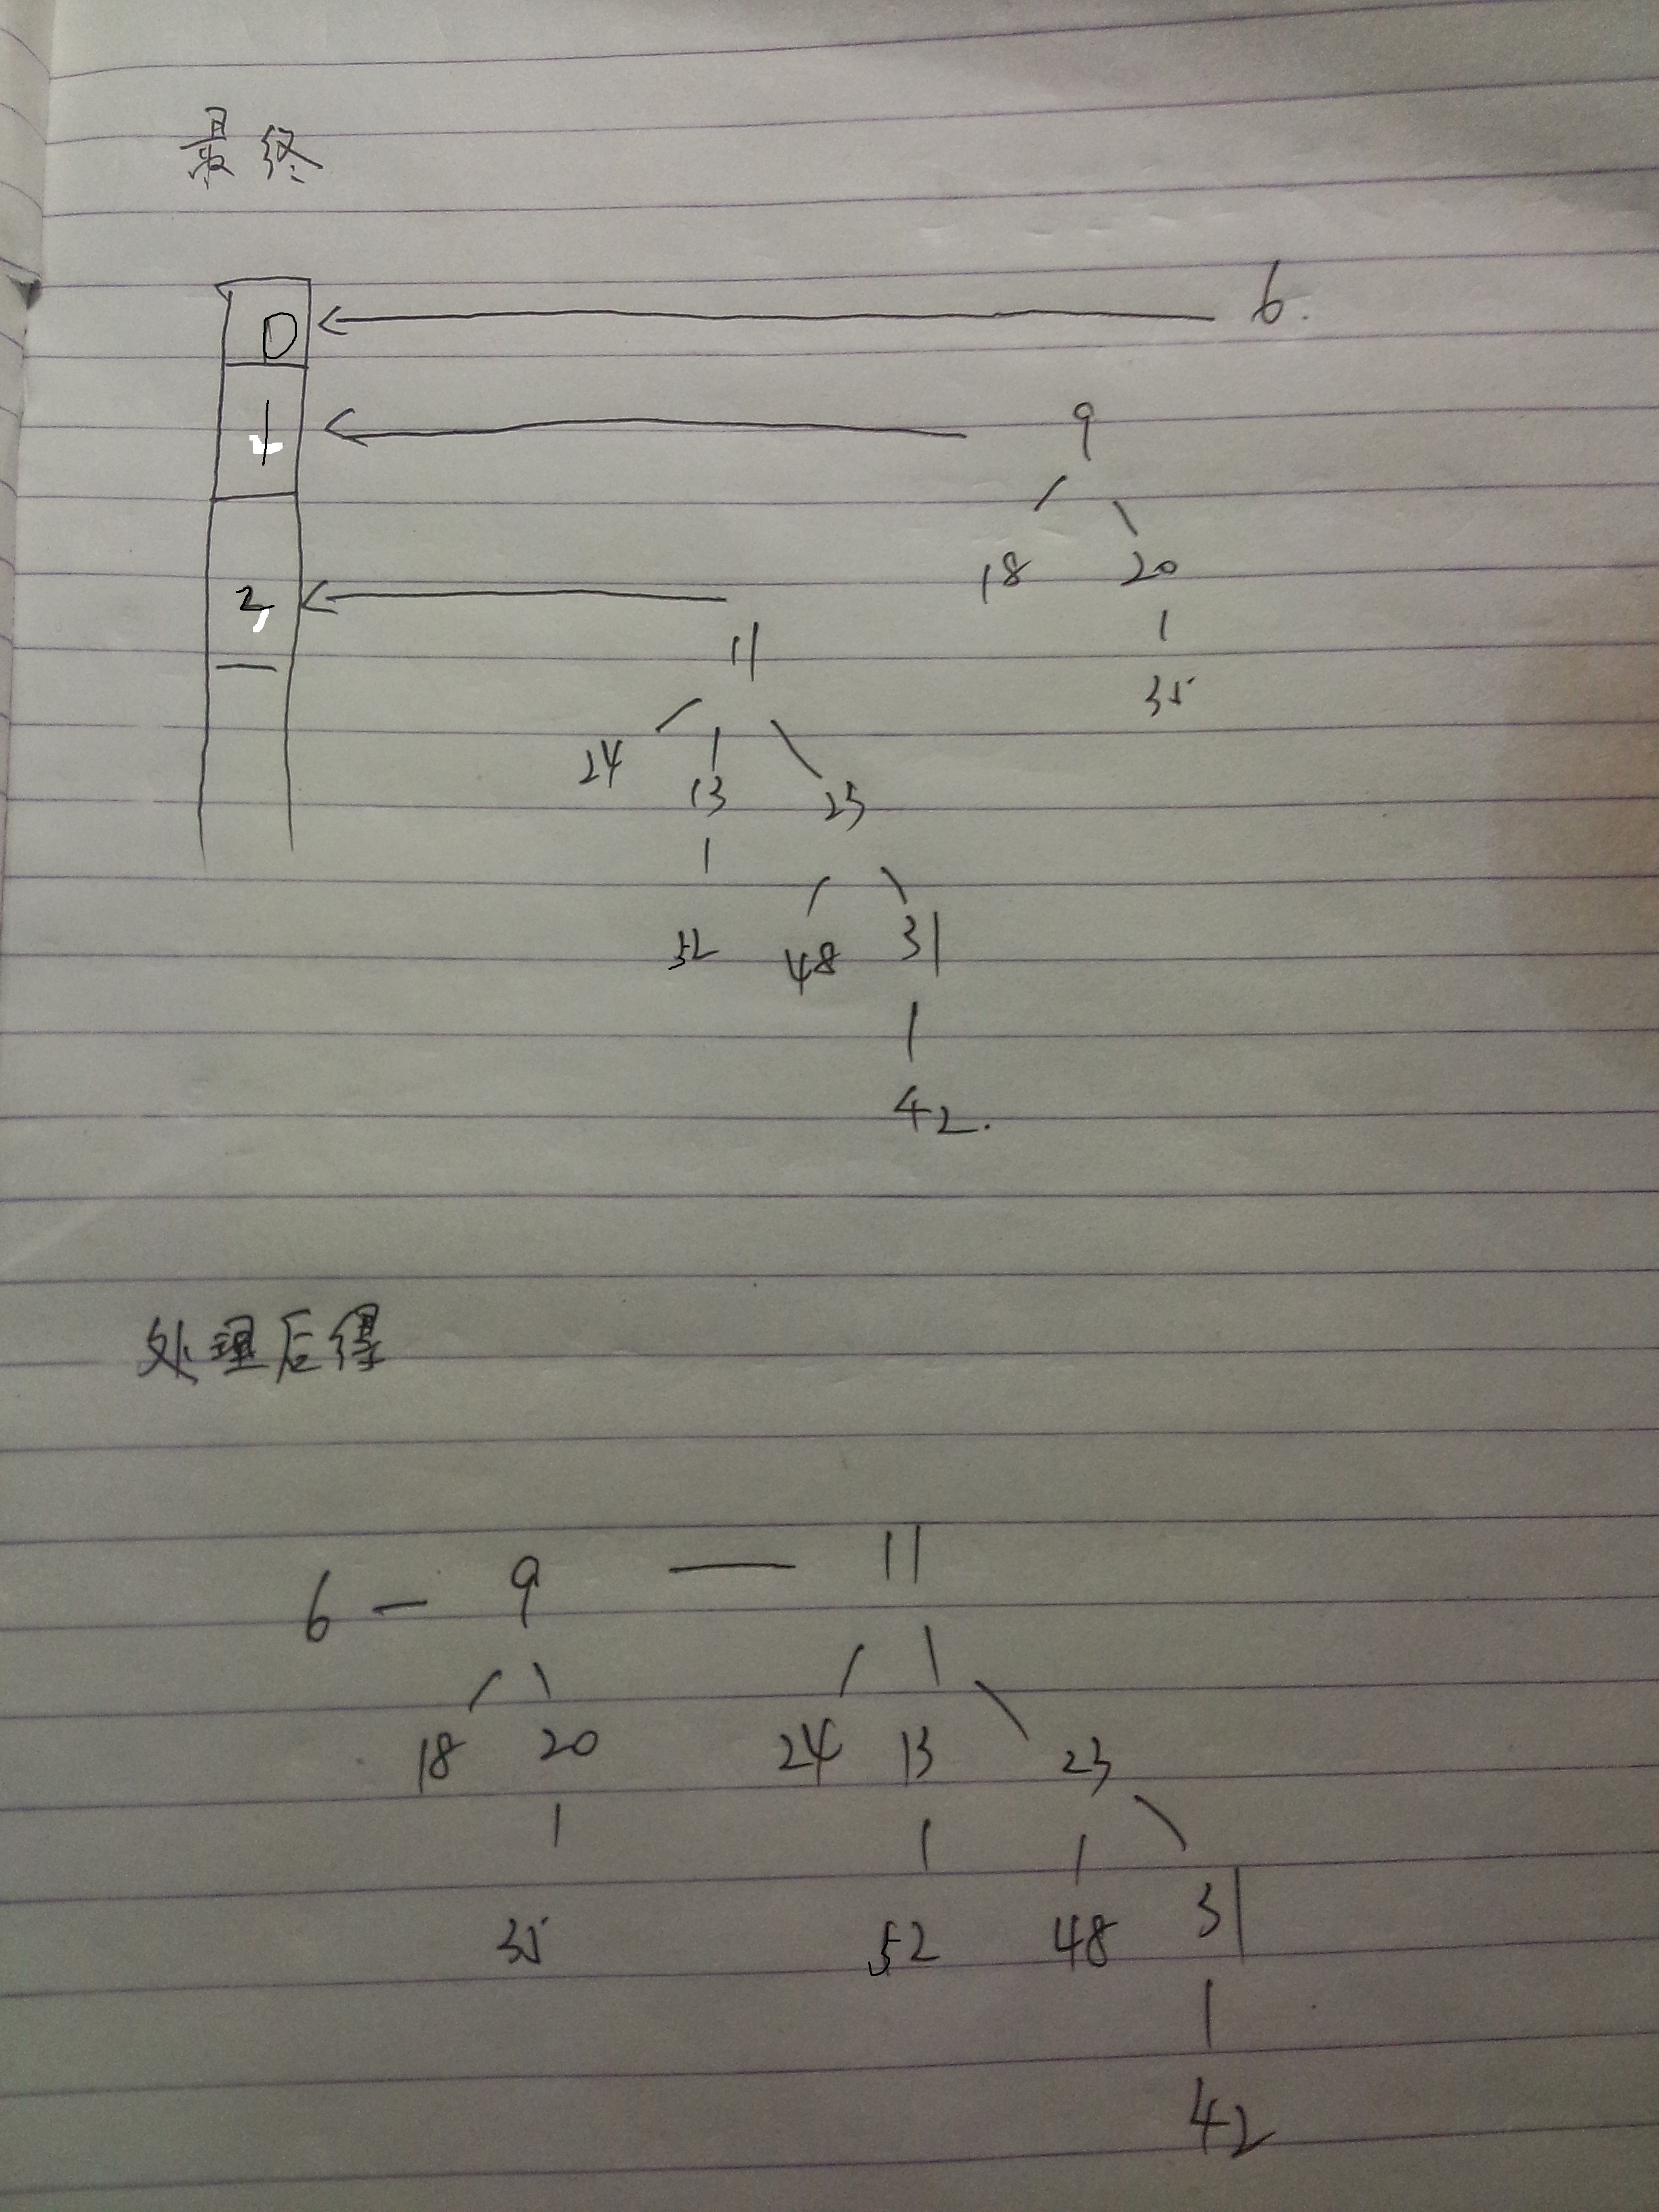 最终
0 6.
1 9
18 20
2 11
35
24 13 23
52 48 31
42.
处理后得
6 - 9 — 11
18 20 24 13 23
35 52 48 31
42